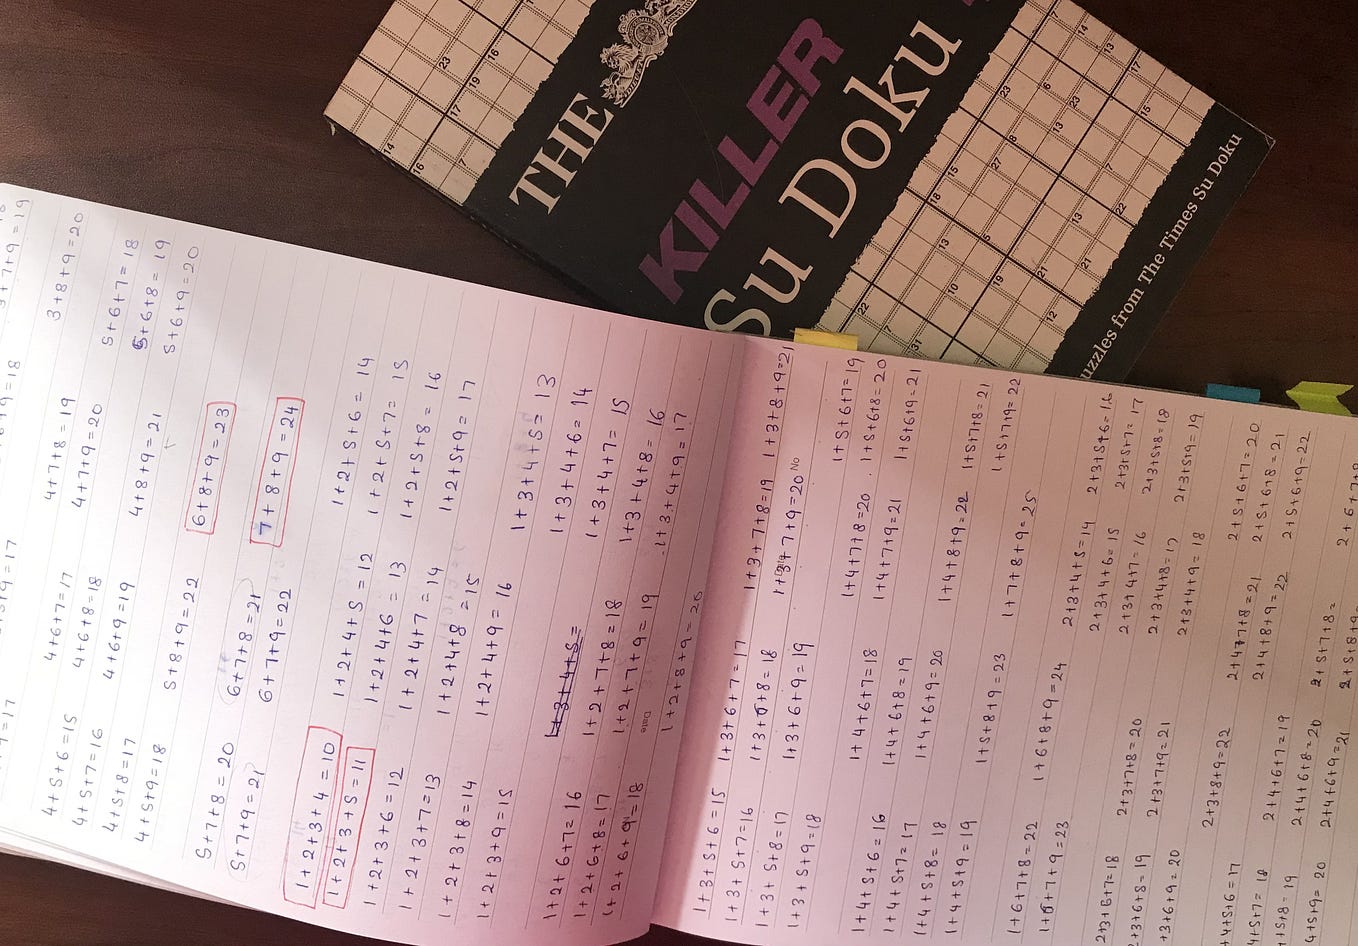 THE
KILLER
Su Doku
uzzles from The Times Su Doku
3+7+9=19
4+5+6=15 4+6+7=17 4+7+8=19 3+8+9=20
4+5+7=16 4+6+8=18 4+7+9=20 5+6+7=18
4+5+8=17 4+6+9=19 4+8+9=21 5+6+8=19
4+5+9=18 5+8+9=22 6+8+9=23 5+6+9=20
5+7+8=20 6+7+8=21 7+8+9=24
5+7+9=21 6+7+9=22
1+2+3+4=10 1+2+4+5=12 1+2+5+6=14
1+2+3+5=11 1+2+4+6=13 1+2+5+7=15
1+2+3+6=12 1+2+4+7=14 1+2+5+8=16
1+2+3+7=13 1+2+4+8=15 1+2+5+9=17
1+2+3+8=14 1+2+4+9=16
1+2+3+9=15 1+3+4+5=13
1+2+6+7=16 1+3+4+5= 1+3+4+6=14
1+2+6+8=17 1+2+7+8=18 1+3+4+7=15
1+2+6+9=18 1+2+7+9=19 1+3+4+8=16
Date 1+2+8+9=20 1+3+4+9=17
1+3+5+6=15 1+3+6+7=17 1+3+7+8=19 1+3+8+9=21
1+3+5+7=16 1+3+6+8=18 1+3+7+9=20 No
1+3+5+8=17 1+3+6+9=19
1+3+5+9=18
1+4+5+6=16 1+4+6+7=18 1+4+7+8=20 1+5+6+7=19
1+4+5+7=17 1+4+6+8=19 1+4+7+9=21 1+5+6+8=20
1+4+5+8=18 1+4+6+9=20 1+5+6+9=21
1+4+5+9=19 1+5+8+9=23 1+4+8+9=22 1+5+7+8=21
1+6+7+8=22 1+6+8+9=24 1+7+8+9=25 1+5+7+9=22
1+6+7+9=23
2+3+6+7=18 2+3+7+8=20 2+3+4+5=14 2+3+5+6=16
2+3+6+8=19 2+3+7+9=21 2+3+4+6=15 2+3+5+7=17
+3+6+9=20 2+3+4+7=16 2+3+5+8=18
2+3+8+9=22 2+3+4+8=17 2+3+5+9=19
2+3+4+9=18
+4+5+6=17 2+4+6+7=19 2+4+7+8=21 2+5+6+7=20
4+5+7=18 2+4+6+8=20 2+4+8+9=22 2+5+6+8=21
+5+8=19 2+4+6+9=21 2+5+7+8= 2+5+6+9=22
4+5+9=20 2+5+8+9